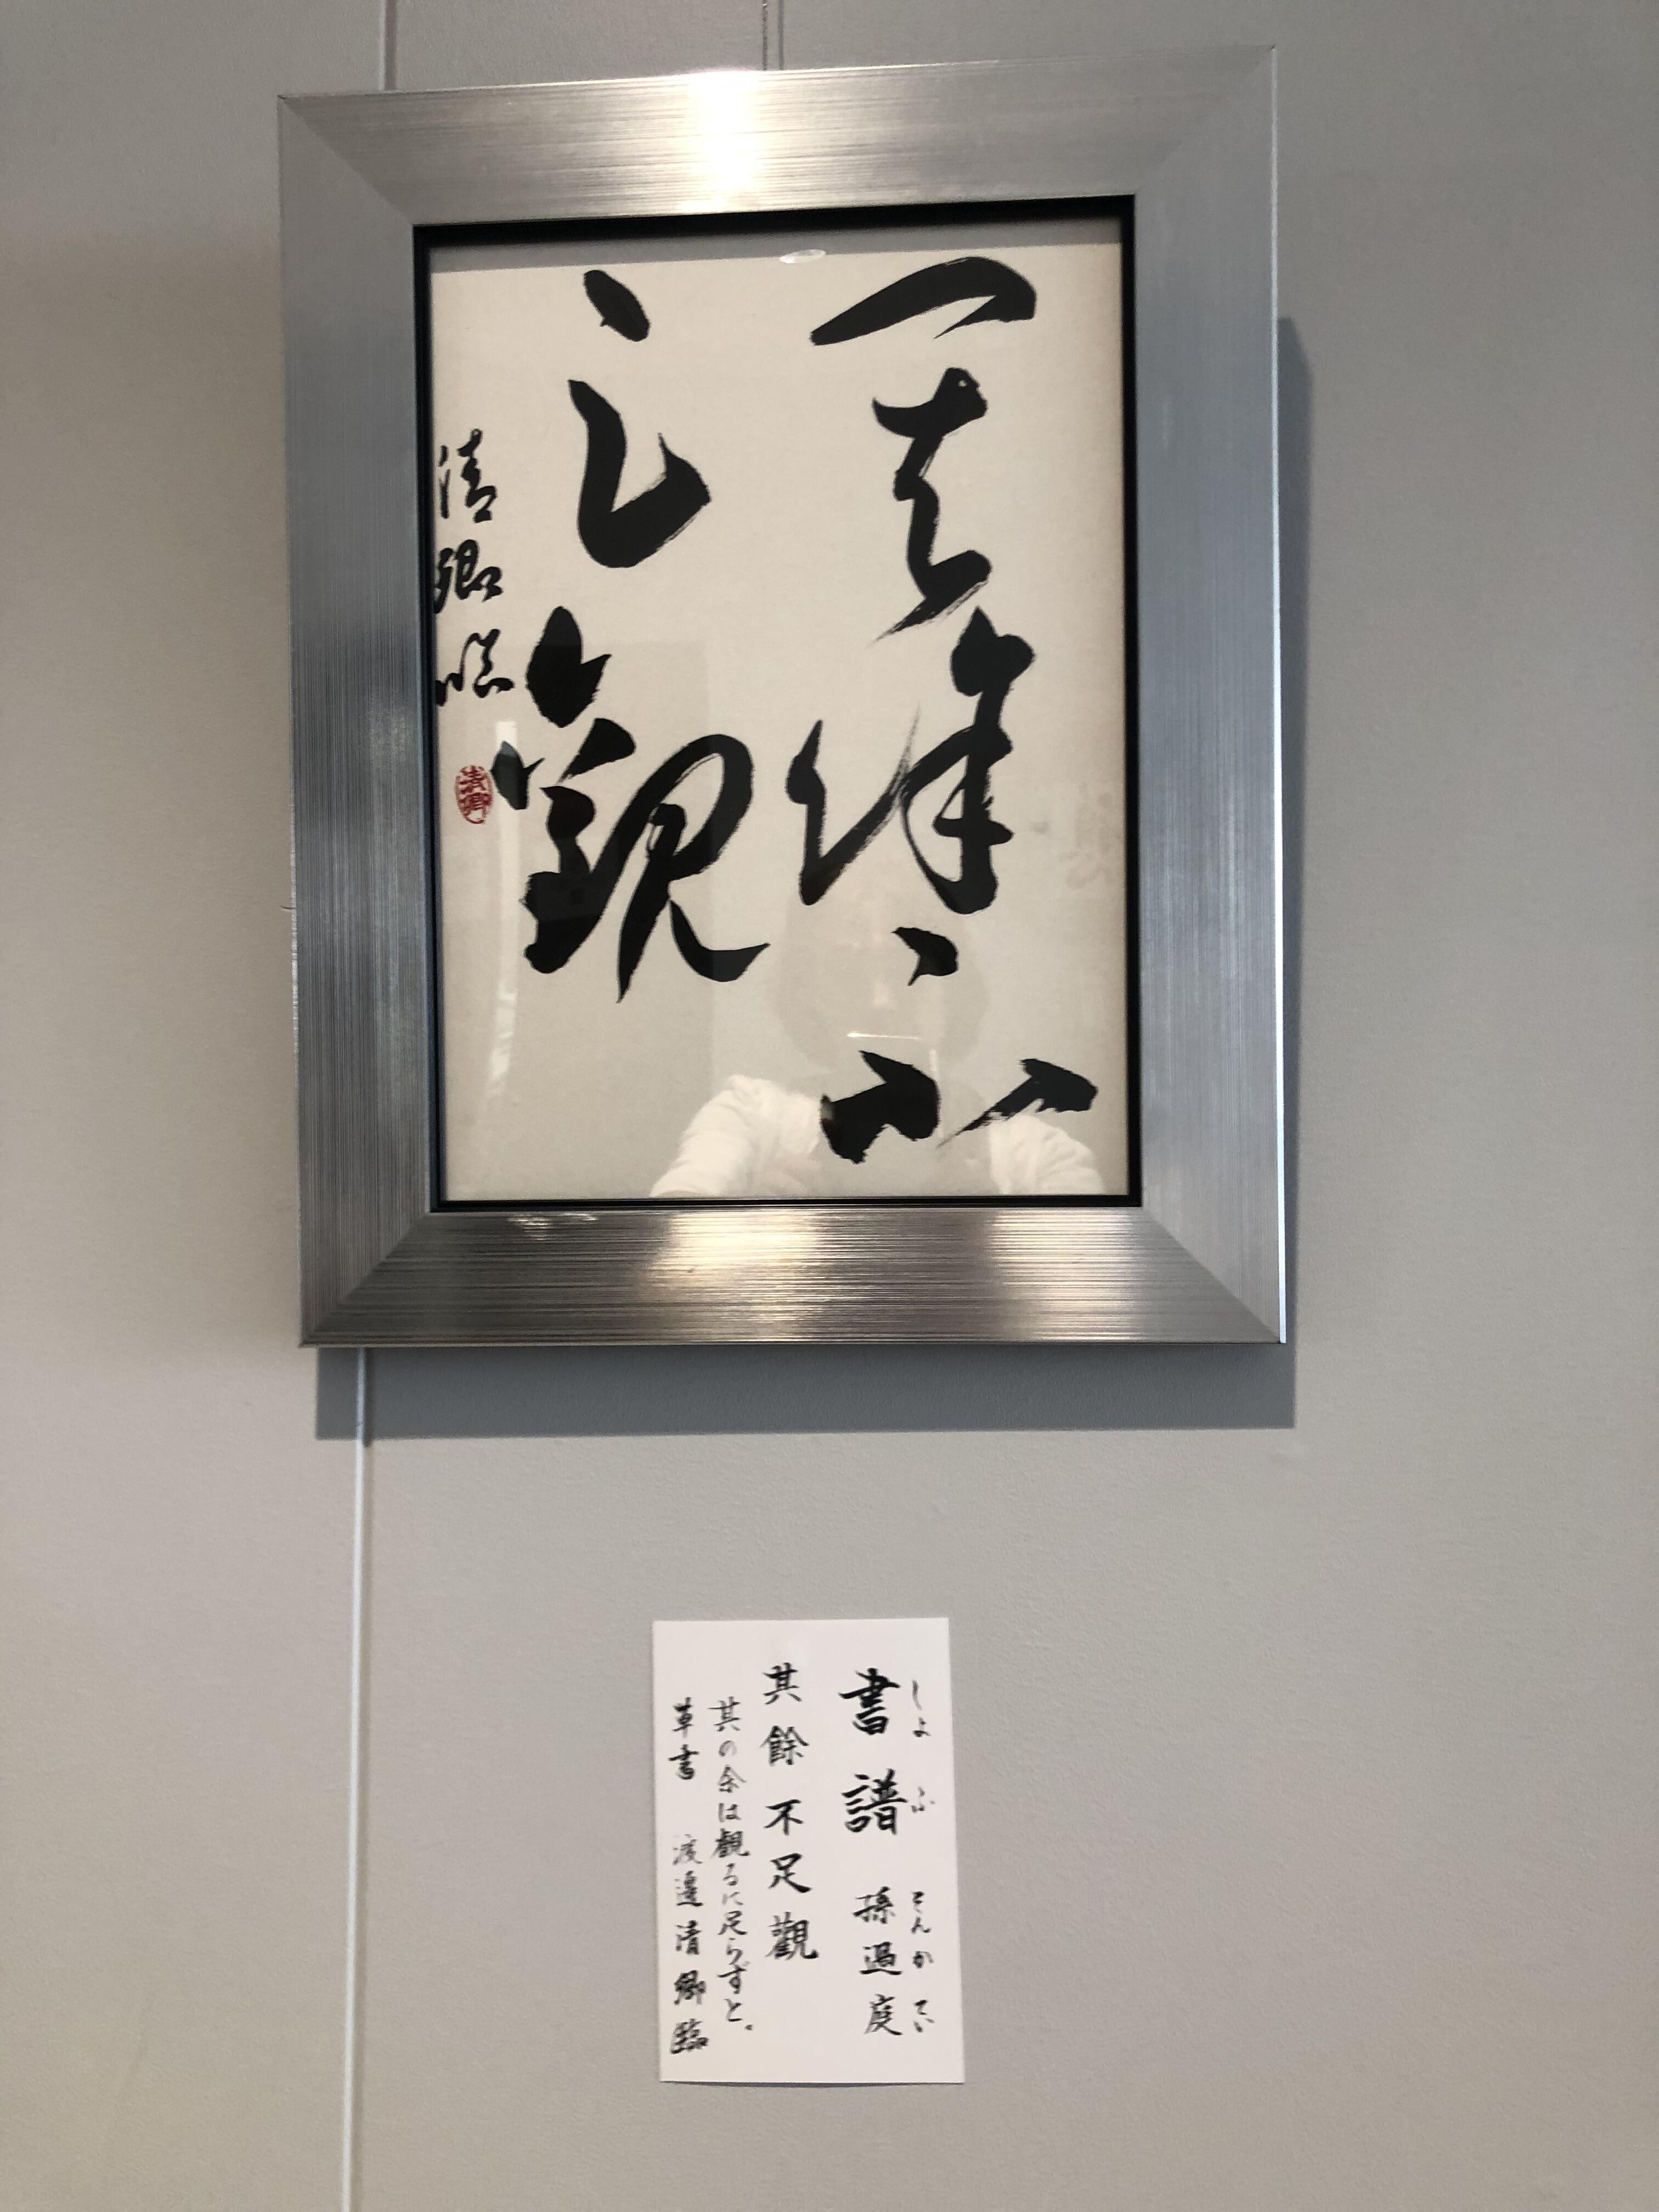 其餘不
足觀
清卿臨
清卿
しよふ そんかてい
書譜 孫過庭
其餘不足觀
其の余は観るに足らずと。
草書 渡邉清卿臨